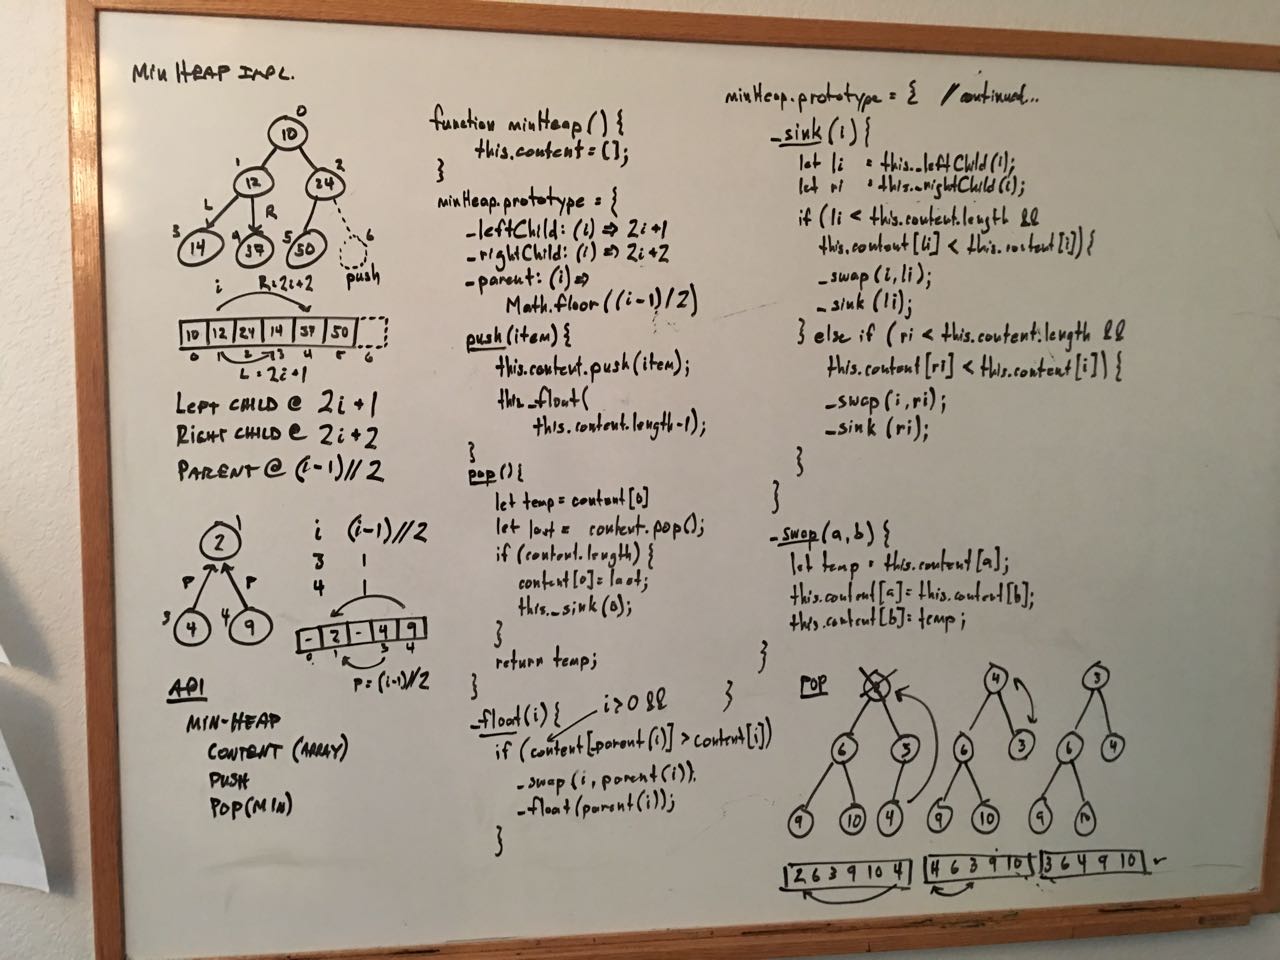 MIN HEAP IMPL.
0
10
1
2
12
24
L
R
3
4
5
6
14
37
50
push
i R=2i+2
10 12 24 14 37 50
0 1 2 3 4 5 6
L=2i+1
LEFT CHILD @ 2i+1
RIGHT CHILD @ 2i+2
PARENT @ (i-1)//2
1
2
P P
3 4
4 9
i (i-1)//2
3 1
4 1
- 2 - 4 9
0 1 3 4
P=(i-1)//2
API
MIN-HEAP
CONTENT (ARRAY)
PUSH
POP(MIN)
function minHeap() {
this.content=[];
}
minHeap.prototype = {
_leftChild: (i) => 2i+1
_rightChild: (i) => 2i+2
_parent: (i) =>
Math.floor((i-1)/2)
push(item){
this.content.push(item);
this._float(
this.content.length-1);
}
pop(){
let temp = content[0]
let last = content.pop();
if (content.length) {
content[0]=last;
this._sink(0);
}
return temp;
}
_float(i){
i>0 &&
if (content[_parent(i)] > content[i])
_swap(i, parent(i)),
_float(parent(i));
}
}
minHeap.prototype = { // continued...
_sink(i){
let li = this._leftChild(i);
let ri = this._rightChild(i);
if (li < this.content.length &&
this.content[li] < this.content[i]){
_swap(i,li);
_sink(li);
} else if (ri < this.content.length &&
this.content[ri] < this.content[i]) {
_swap(i,ri);
_sink(ri);
}
}
_swap(a,b) {
let temp = this.content[a];
this.content[a]=this.content[b];
this.content[b]=temp;
}
}
POP
6 3
9 10 4
2 6 3 9 10 4
4
6 3
9 10
4 6 3 9 10
3
6 4
9 10
3 6 4 9 10